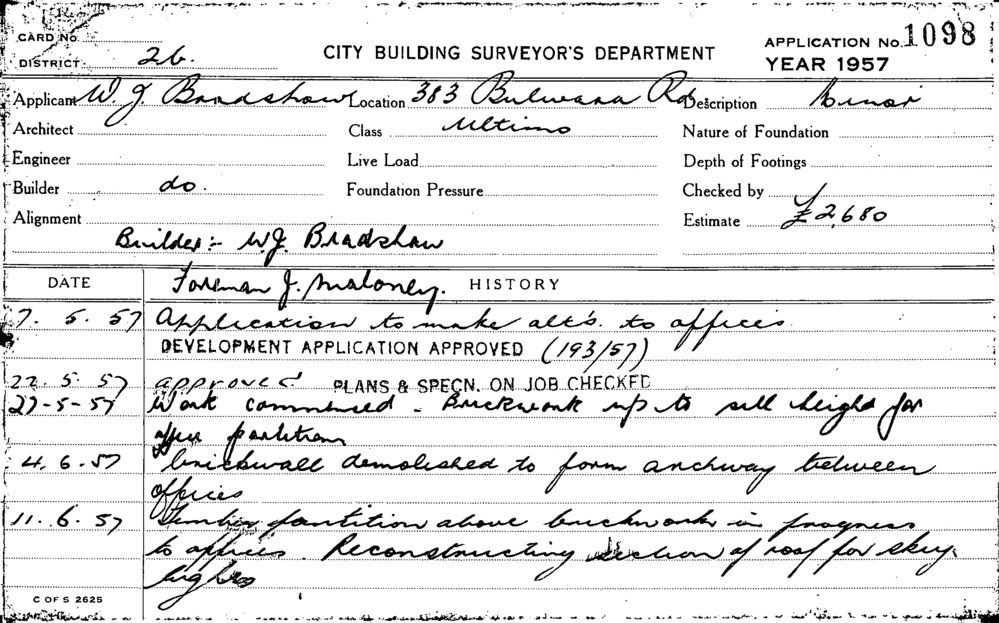 CARD No.
CITY BUILDING SURVEYOR'S DEPARTMENT
APPLICATION No. 1098
DISTRICT 26.
YEAR 1957
Applicant W. J. Bradshaw Location 383 Bulwara Rd Description Minor
Architect Class Ultimo Nature of Foundation
Engineer Live Load Depth of Footings
Builder do. Foundation Pressure Checked by
Alignment Estimate £2,680
Builder:- W.J. Bradshaw
DATE Foreman J. Maloney. HISTORY
7. 5. 57 Application to make alt's. to offices
DEVELOPMENT APPLICATION APPROVED (193/57)
22. 5. 57 approved PLANS & SPECN. ON JOB CHECKED
27-5-57 Work commenced - Brickwork up to sill height for
office partition
4. 6. 57 brickwall demolished to form archway between
offices
11. 6. 57 Timber partition above brickwork in progress
to offices. Reconstructing section of roof for sky
lights
C OF S 2625